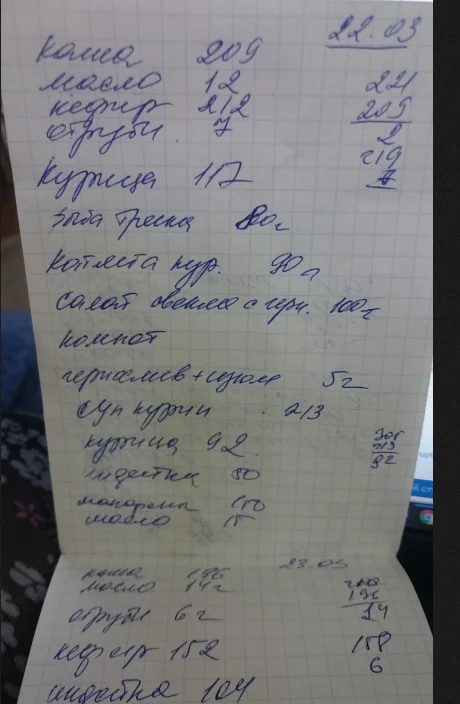 22.03
каша 209
масло 12 221
кефир 212 209
отруби 7 2
219
Курица 117 7
рыба треска 80г
котлета кур. 90г
салат свекла с черн. 100г
компот
чернослив+изюм 5г
суп курин 213
курица 92 305
213
92
индейка 80
макароны 150
масло 15
каша 196 23.03
масло 14г 210
196
14
отруби 6г
кефир 152 158
6
индейка 104